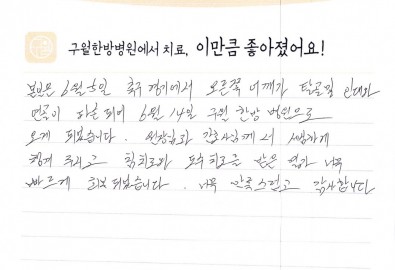 구월한방병원에서 치료, 이만큼 좋아졌어요!
본인은 6월 5일 축구 경기에서 오른쪽 어깨가 탈골및 인대와
연골이 파손 되어 6월 14일 구월 한방 병원으로
오게 되었습니다. 원장님과 간호사님께서 세심하게
챙겨 주시고 침치료와 도수 치료를 받은 결과 너무
빠르게 회복 되었습니다. 너무 만족스럽고 감사합니다